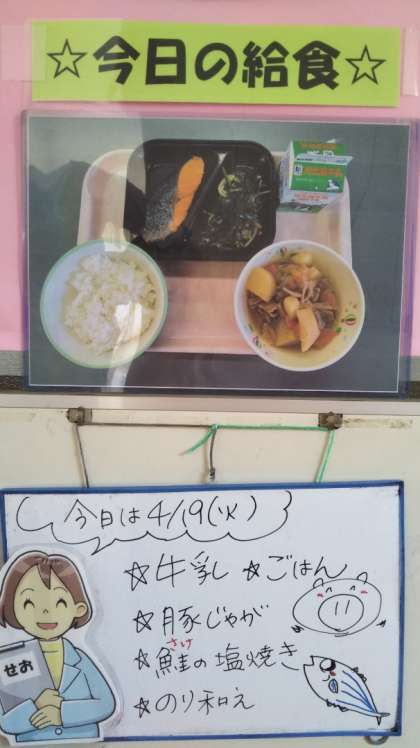 ☆今日の給食☆
今日は4/19(火)
☆牛乳 ☆ごはん
☆豚じゃが
さけ
☆鮭の塩焼き
☆のり和え
せお